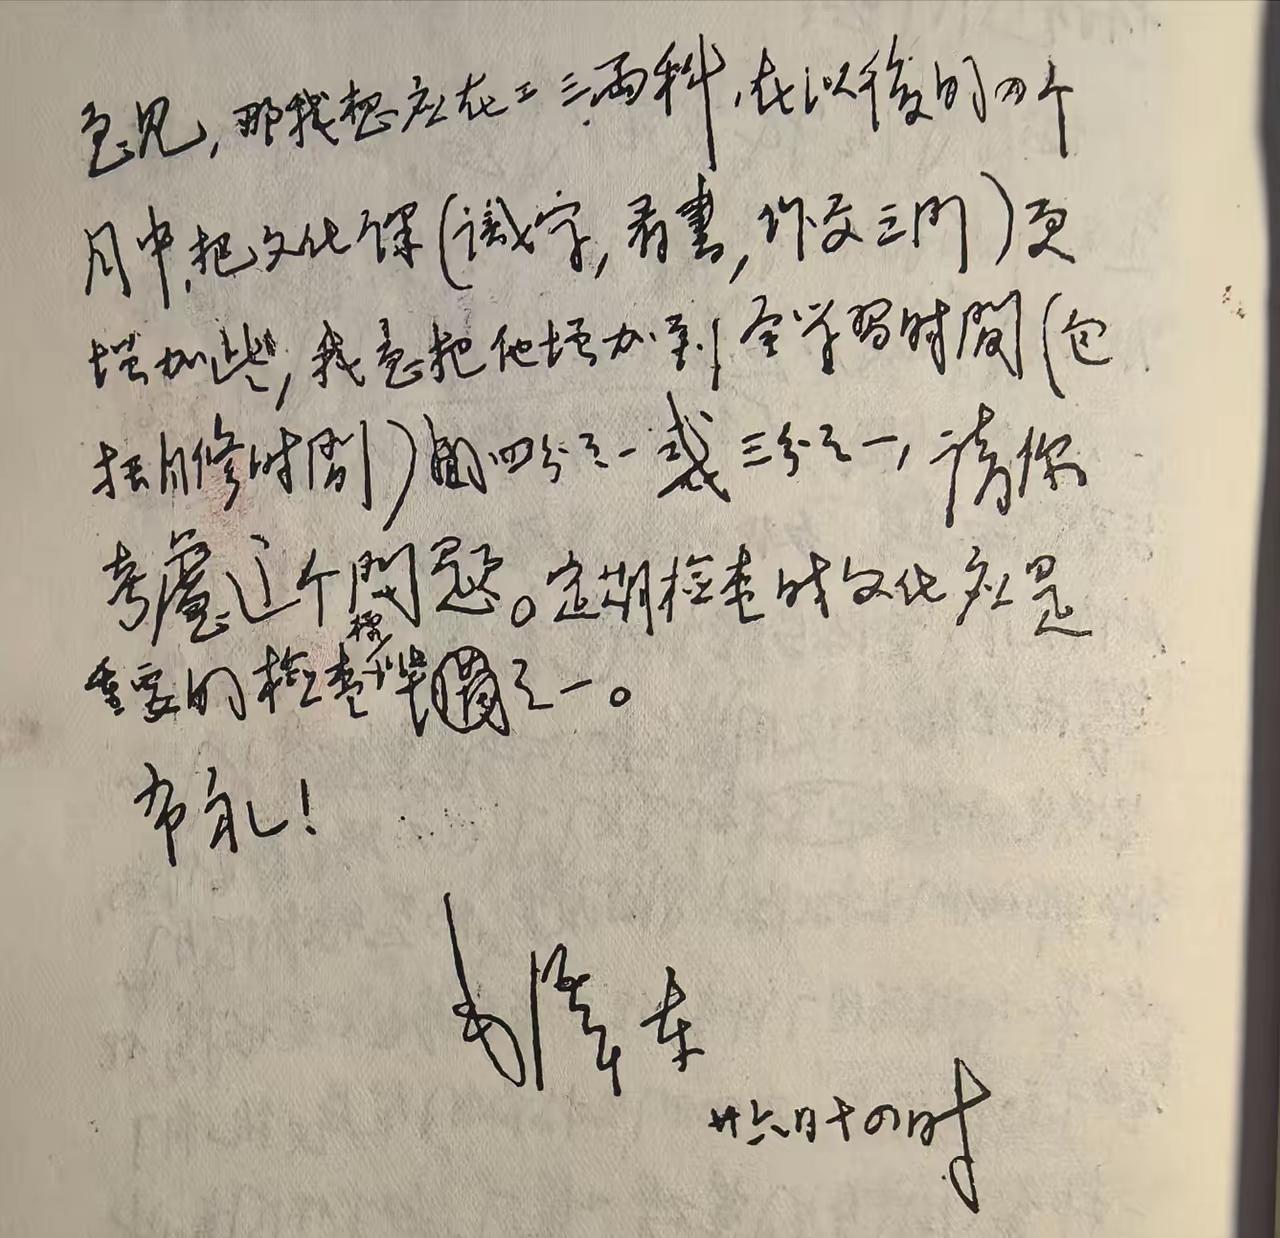 意见，那我想应在二三两科，在以後的四个
月中，把文化课（識字，看書，作文三門）更
增加些，我意把他增加到全学習时間（包
括自修时間）的四分之一或三分之一，请你
考慮这个問题。定期检查时文化应是
重要的检查標准之一。
布礼！
毛澤东
廿六日十四时